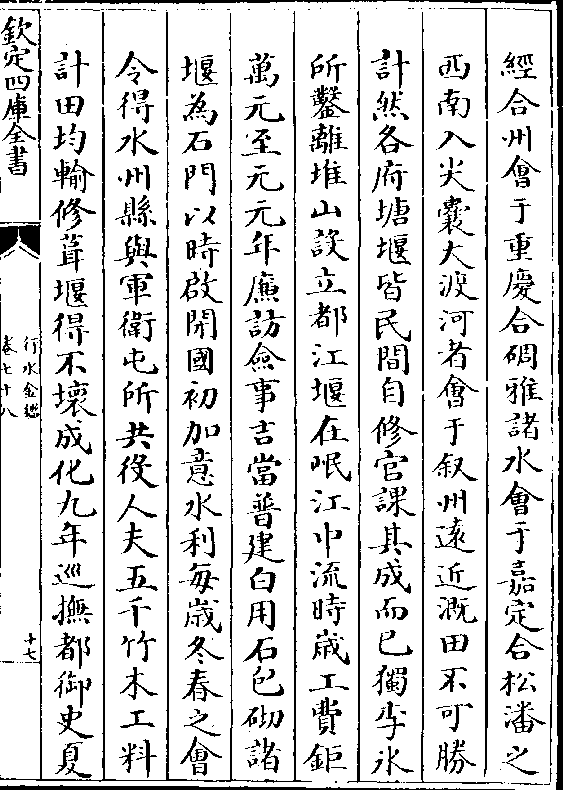 經合州會于重慶合碉雅諸水會于嘉定合松潘之
西南入尖囊大渡河者會于叙州遠近溉田不可勝
計然各府塘堰皆民間自修官課其成而已獨李氷
所鑿離堆山設立都江堰在岷江中流時歳工費鉅
萬元至元元年廉訪僉事吉當普建白用石包砌諸
堰為石門以時啟閉國初加意水利每歳冬春之會
令得水州縣與軍衛屯所共役人夫五千竹木工料
計田均輸修葺堰得不壞成化九年巡撫都御史夏
欽定四庫全書
行水金鑑
卷七十八
十七